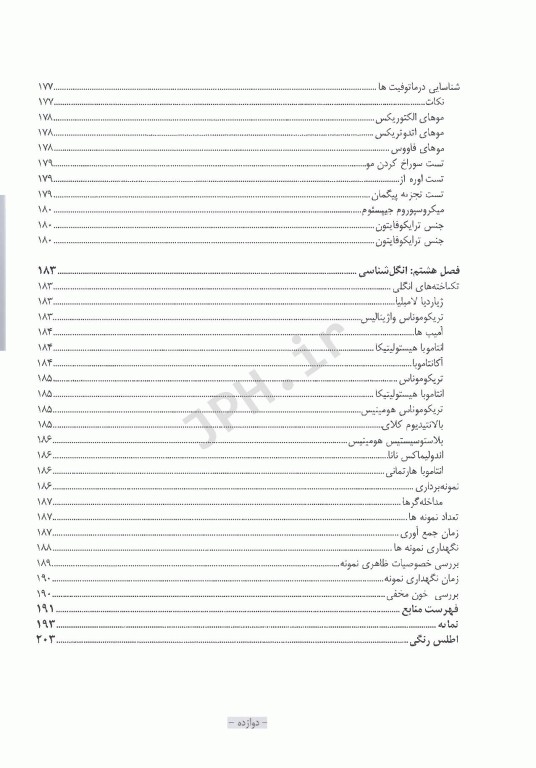 شناسایی درماتوفیت ها ... ۱۷۷
نکات ... ۱۷۷
موهای الکتوریکس ... ۱۷۸
موهای اندوتریکس ... ۱۷۸
موهای فاووس ... ۱۷۸
تست سوراخ کردن مو ... ۱۷۹
تست اوره از ... ۱۷۹
تست تجزیه پیگمان ... ۱۷۹
میکروسپوروم جیپسئوم ... ۱۸۰
جنس ترایکوفایتون ... ۱۸۰
جنس ترایکوفایتون ... ۱۸۰
فصل هشتم: انگل‌شناسی ... ۱۸۳
تکیاخته‌های انگلی ... ۱۸۳
ژیاردیا لامبلیا ... ۱۸۳
تریکوموناس واژینالیس ... ۱۸۳
آمیب ها ... ۱۸۴
انتاموبا هیستولیتیکا ... ۱۸۴
آکانتاموبا ... ۱۸۴
تریکوموناس ... ۱۸۵
انتاموبا هیستولیتیکا ... ۱۸۵
تریکوموناس هومینیس ... ۱۸۵
بالانتیدیوم کلای ... ۱۸۵
بلاستوسیستیس هومینیس ... ۱۸۶
اندولیماکس نانا ... ۱۸۶
انتاموبا هارتمانی ... ۱۸۶
نمونه‌برداری ... ۱۸۶
مداخله‌گرها ... ۱۸۷
تعداد نمونه ها ... ۱۸۷
زمان جمع آوری ... ۱۸۷
نگهداری نمونه ها ... ۱۸۸
بررسی خصوصیات ظاهری نمونه ... ۱۸۹
زمان نگهداری نمونه ... ۱۹۰
بررسی خون مخفی ... ۱۹۰
فهرست منابع ... ۱۹۱
نمایه ... ۱۹۳
اطلس رنگی ... ۲۰۳
JPH.ir
- دوازده -